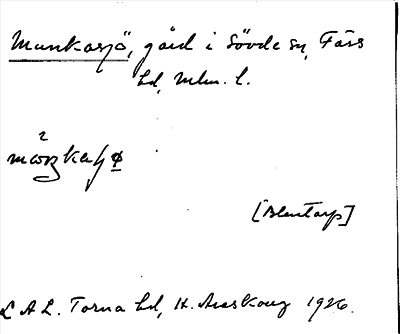 Munkasjö, gård i Sövde sn, Färs
hd, Mlm. l.
[Blentarp]
L A L. Torna hd, H. Areskoug 1926.